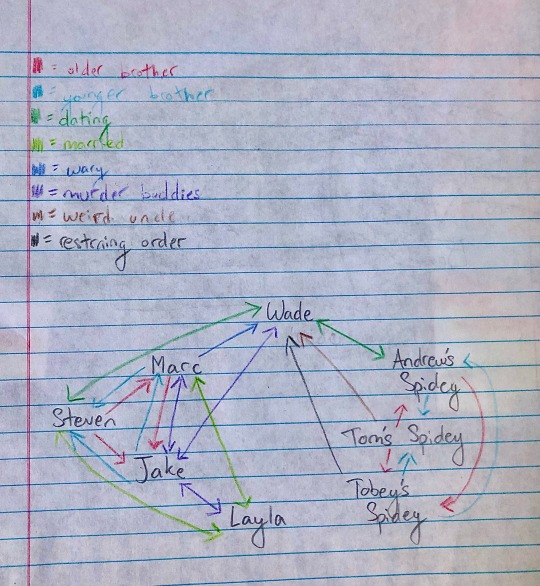 = older brother
= younger brother
= dating
= married
= wary
= murder buddies
= weird uncle
= restraing order
Wade
Marc
Andrew's
Spidey
Steven
Tom's Spidey
Jake
Tobey's
Spidey
Layla